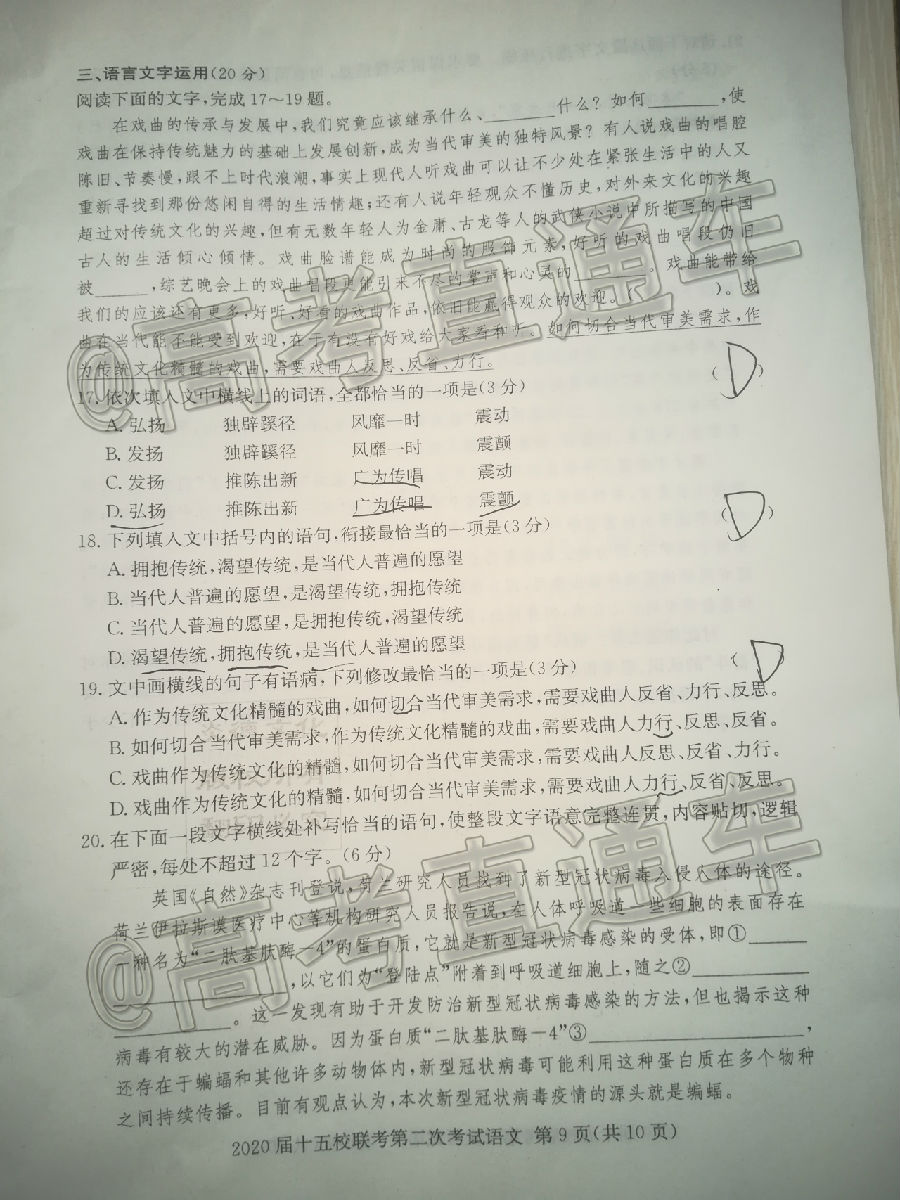 三、语言文字运用(20分)
阅读下面的文字,完成17～19题。
在戏曲的传承与发展中,我们究竟应该继承什么、________什么?如何________,使
戏曲在保持传统魅力的基础上发展创新,成为当代审美的独特风景?有人说戏曲的唱腔
陈旧、节奏慢,跟不上时代浪潮,事实上现代人听戏曲可以让不少处在紧张生活中的人又
重新寻找到那份悠闲自得的生活情趣;还有人说年轻观众不懂历史,对外来文化的兴趣
超过对传统文化的兴趣,但有无数年轻人为金庸、古龙等人的武侠小说中所描写的中国
古人的生活倾心倾情。戏曲脸谱能成为时尚的服饰元素,好听的戏曲唱段仍旧
被______,综艺晚会上的戏曲唱段更能引来不尽的掌声和心灵的______。戏曲能带给
我们的应该还有更多,好听、好看的戏曲作品,依旧能赢得观众的欢迎。( )。戏
曲在当代能不能受到欢迎,在于有没有好戏给大家看和听。如何切合当代审美需求,作
为传统文化精髓的戏曲,需要戏曲人反思、反省、力行。
17.依次填入文中横线上的词语,全部恰当的一项是(3分) (D)
A.弘扬 独辟蹊径 风靡一时 震动
B.发扬 独辟蹊径 风靡一时 震颤
C.发扬 推陈出新 广为传唱 震动
D.弘扬 推陈出新 广为传唱 震颤
18.下列填入文中括号内的语句,衔接最恰当的一项是(3分) (D)
A.拥抱传统,渴望传统,是当代人普遍的愿望
B.当代人普遍的愿望,是渴望传统,拥抱传统
C.当代人普遍的愿望,是拥抱传统,渴望传统
D.渴望传统,拥抱传统,是当代人普遍的愿望
19.文中画横线的句子有语病,下列修改最恰当的一项是(3分) (D
A.作为传统文化精髓的戏曲,如何切合当代审美需求,需要戏曲人反省、力行、反思。
B.如何切合当代审美需求,作为传统文化精髓的戏曲,需要戏曲人力行、反思、反省。
C.戏曲作为传统文化的精髓,如何切合当代审美需求,需要戏曲人反思、反省、力行。
D.戏曲作为传统文化的精髓,如何切合当代审美需求,需要戏曲人力行、反省、反思。
20.在下面一段文字横线处补写恰当的语句,使整段文字语意完整连贯,内容贴切,逻辑
严密,每处不超过12个字。(6分)
英国《自然》杂志刊登说,荷兰研究人员找到了新型冠状病毒入侵人体的途径。
荷兰伊拉斯谟医疗中心等机构研究人员报告说,在人体呼吸道一些细胞的表面存在
一种名为“二肽基肽酶－4”的蛋白质,它就是新型冠状病毒感染的受体,即①______
______________,以它们为“登陆点”附着到呼吸道细胞上,随之②____________
____________。这一发现有助于开发防治新型冠状病毒感染的方法,但也揭示这种
病毒有较大的潜在威胁。因为蛋白质“二肽基肽酶－4”③__________________,
还存在于蝙蝠和其他许多动物体内,新型冠状病毒可能利用这种蛋白质在多个物种
之间持续传播。目前有观点认为,本次新型冠状病毒疫情的源头就是蝙蝠。
2020届十五校联考第二次考试语文 第9页(共10页)
@高考直通车
@高考直通车